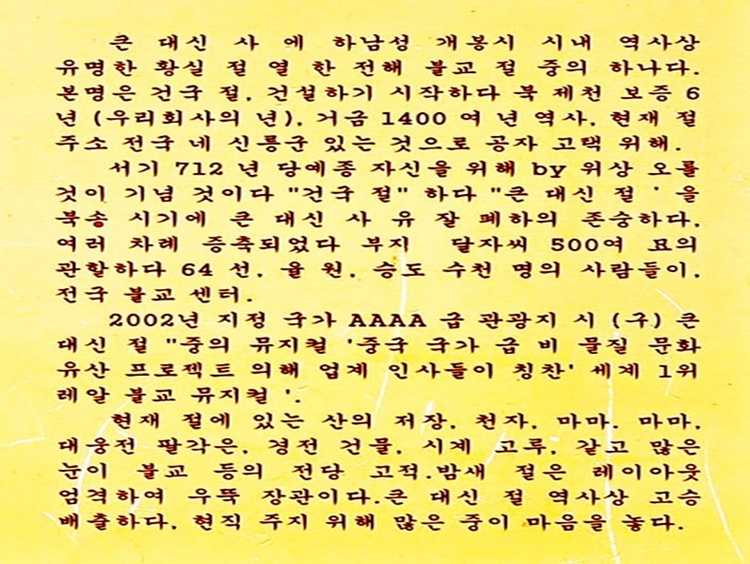 큰 대신 사 에 하남성 개봉시 시내 역사상
유명한 황실 절 열 한 전해 불교 절 중의 하나다.
본명은 건국 절, 건설하기 시작하다 북 제천 보증 6
년 (우리회사의 년), 거금 1400 여 년 역사, 현재 절
주소 전국 네 신릉군 있는 것으로 공자 고택 위해.
서기 712 년 당예종 자신을 위해 by 위상 오를
것이 기념 것이다 "건국 절" 하다 "큰 대신 절 ' 을
북송 시기에 큰 대신 사 유 잘 폐하의 존숭하다,
여러 차례 증축되었다 부지 달자씨 500여 묘의
관할하다 64 선, 율 원, 승도 수천 명의 사람들이,
전국 불교 센터.
2002년 지정 국가 AAAA 급 관광지 시 (구) 큰
대신 절 "중의 뮤지컬 '중국 국가 급 비 물질 문화
유산 프로젝트 의해 업계 인사들이 칭찬' 세계 1위
레알 불교 뮤지컬 '.
현재 절에 있는 산의 저장, 천자, 마마, 마마,
대웅전 팔각은, 경전 건물, 시계 고루, 같고 많은
눈이 불교 등의 전당 고적.밤새 절은 레이아웃
엄격하여 우뚝 장관이다.큰 대신 절 역사상 고승
배출하다, 현직 주지 위해 많은 중이 마음을 놓다.